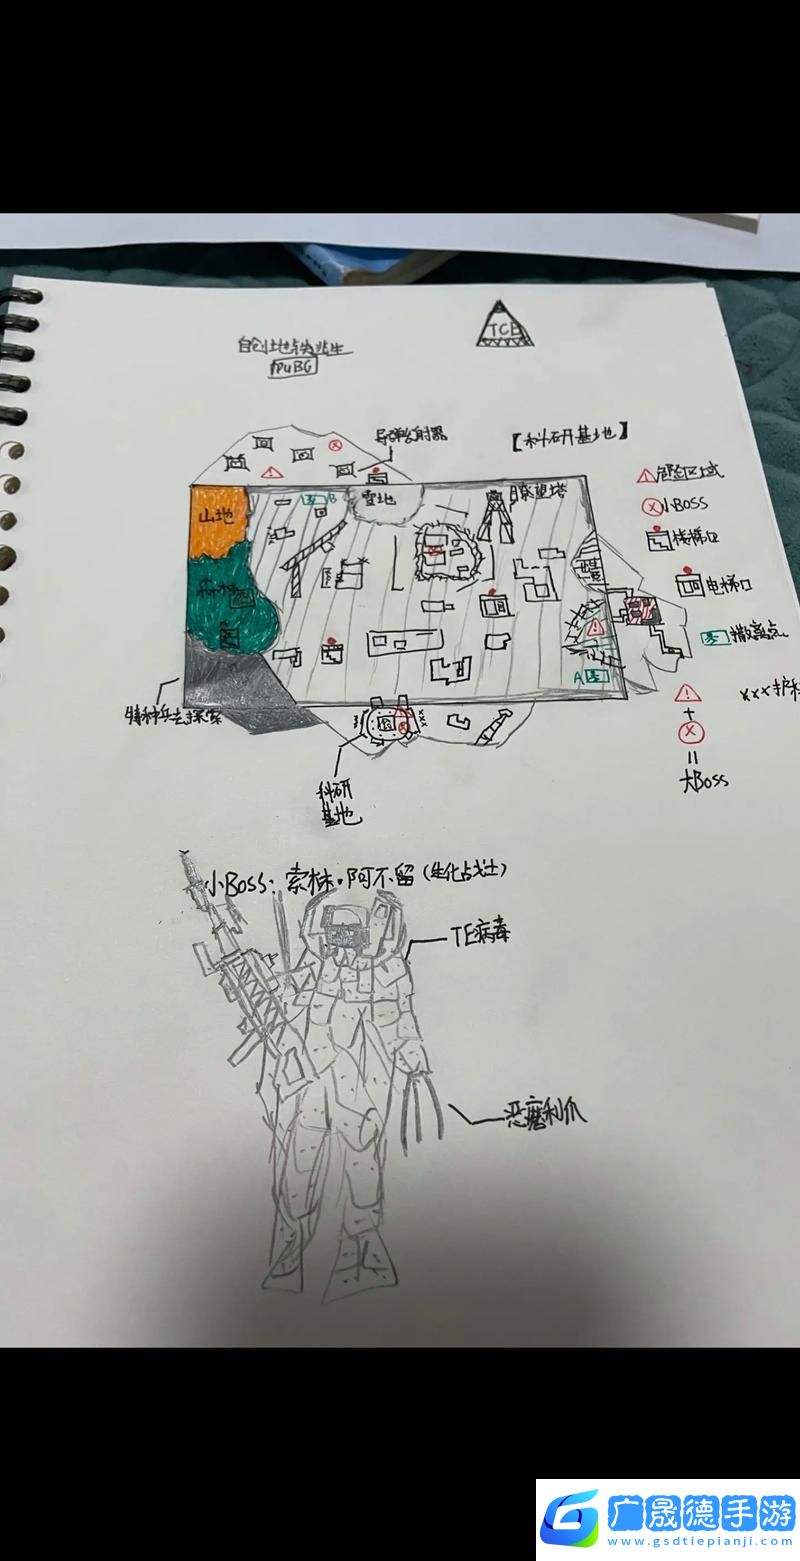 自创地铁逃生
PUBG
TCE
导弹发射器
【科研基地】
危险区域
小BOSS
山地
B
雪地
瞭望塔
楼梯口
森林
电梯口
撤离点
A
xxx护
特种兵去探索
xxx
+
=
大Boss
科研
基地
小BOSS:索林·阿不留(生化战士)
TE病毒
恶魔利爪
广晟德手游
www.gsdtiepianji.com